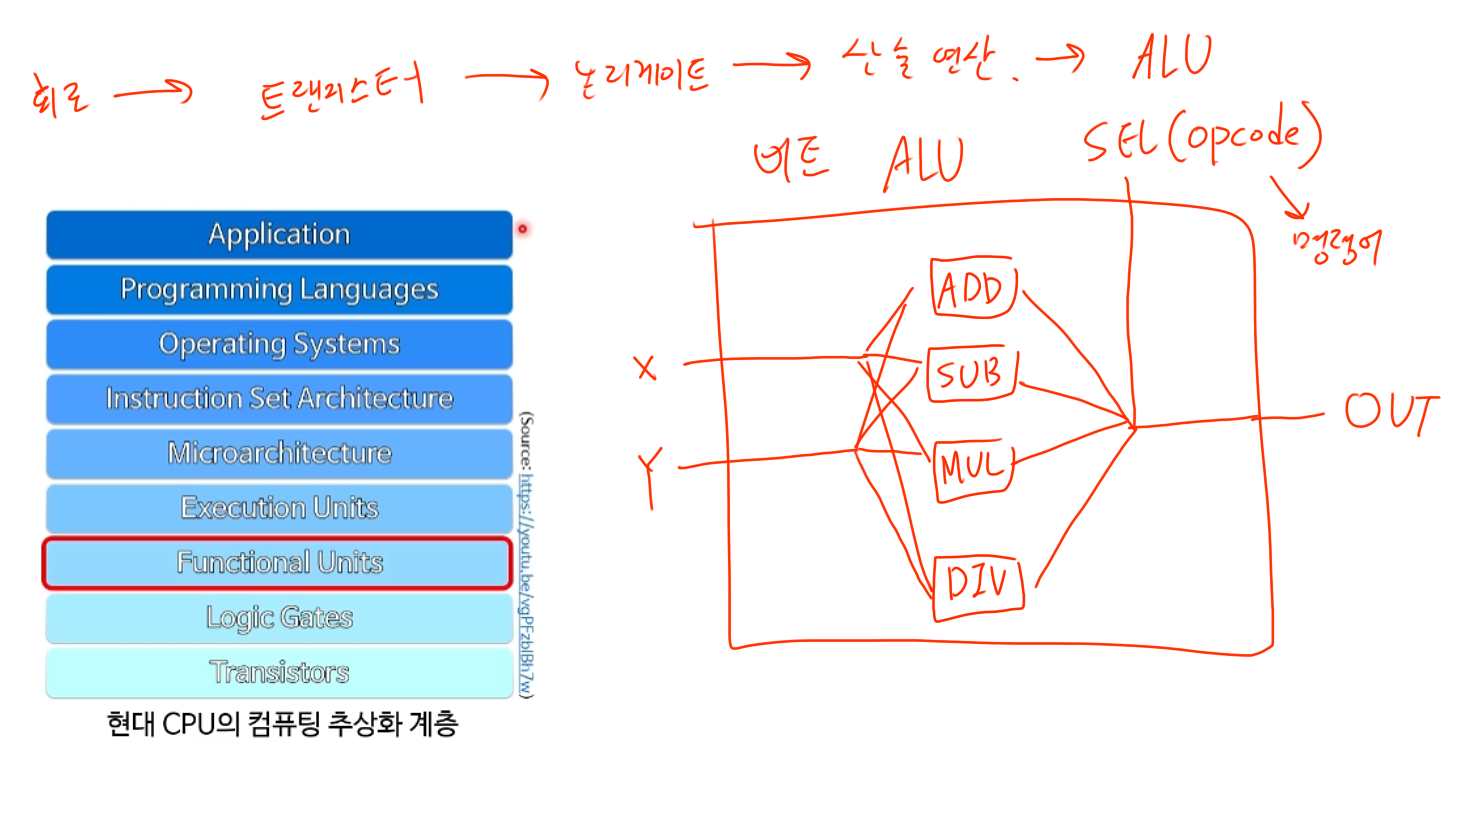 회로 → 트랜지스터 → 논리게이트 → 산술 연산. → ALU
비트 ALU
SEL(opcode)
명령어
X
Y
ADD
SUB
MUL
DIV
OUT
Application
Programming Languages
Operating Systems
Instruction Set Architecture
Microarchitecture
Execution Units
Functional Units
Logic Gates
Transistors
(Source: https://youtu.be/vgPFzblBh7w)
현대 CPU의 컴퓨팅 추상화 계층